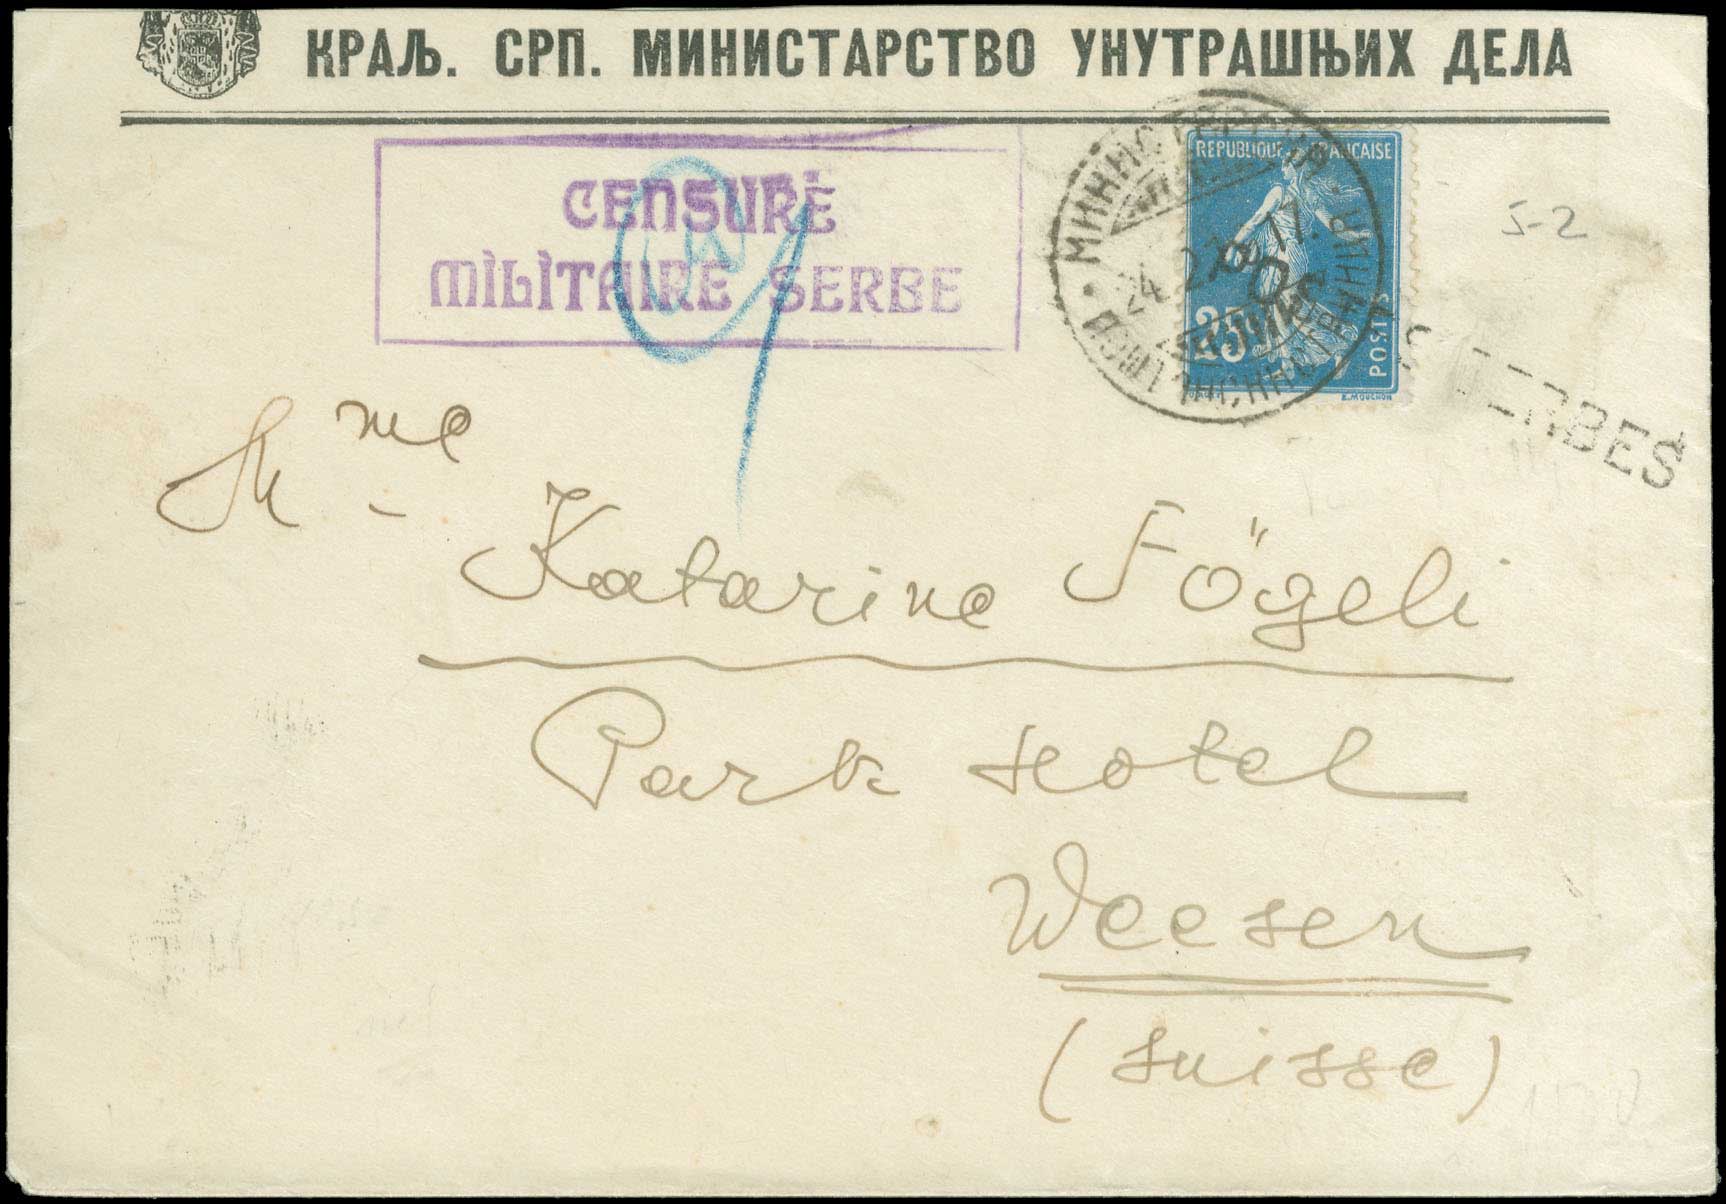 КРАЉ. СРП. МИНИСТАРСТВО УНУТРАШЊИХ ДЕЛА
CENSURÉ
MILITAIRE SERBE
REPUBLIQUE FRANCAISE
24. 2. 17.
25
POSTES
E.MOUCHON
5-2
SERBES
Mme
Katarine Fögeli
Park Hotel
Weesen
(Suisse)